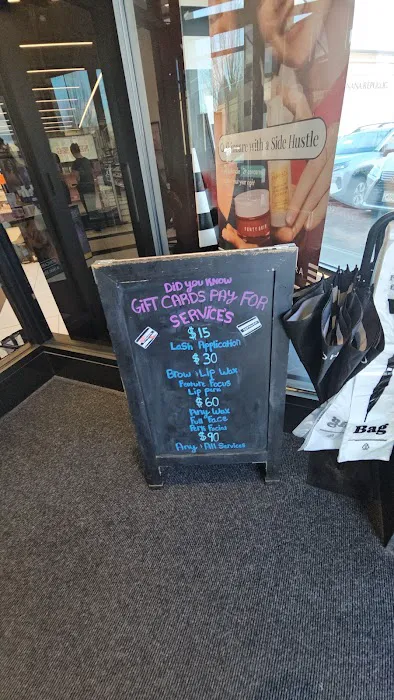 BANANA REPUBLIC
with a Side Hustle
FENTY SKIN
DID YOU KNOW
GIFT CARDS PAY FOR
SERVICES
$15
Lash Application
$30
Brow + Lip Wax
Feature Focus
Lip
$60
Any Wax
Full Face
Perk Facial
$90
Any + All Services
Bag